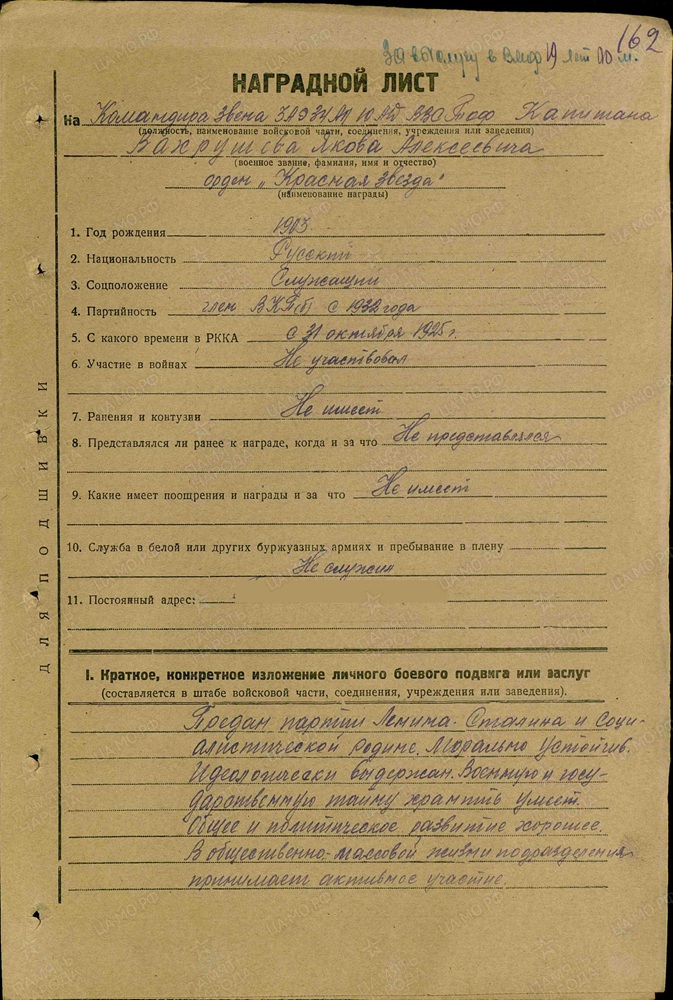 За выслугу в ВМФ 19 лет 10 м.
162
НАГРАДНОЙ ЛИСТ
На Командира звена ЗАЭ ВВС Тоф Капитана
(должность, наименование войсковой части, соединения, учреждения или заведения)
Вахрушева Якова Алексеевича
(военное звание, фамилия, имя и отчество)
орден „Красная Звезда"
(наименование награды)
1. Год рождения 1903
2. Национальность Русский
3. Соцположение Служащий
4. Партийность член ВКП(б) с 1932 года
5. С какого времени в РККА с 31 октября 1925 г.
6. Участие в войнах Не участвовал
7. Ранения и контузии Не имеет
8. Представлялся ли ранее к награде, когда и за что Не представлялся
9. Какие имеет поощрения и награды и за что Не имеет
10. Служба в белой или других буржуазных армиях и пребывание в плену
Не служил
11. Постоянный адрес:
ДЛЯ ПОДШИВКИ
I. Краткое, конкретное изложение личного боевого подвига или заслуг
(составляется в штабе войсковой части, соединения, учреждения или заведения).
Предан партии Ленина-Сталина и Соци-
алистической родине. Морально устойчив.
Идеологически выдержан. Военную и госу-
дарственную тайну хранить умеет.
Общее и политическое развитие хорошее.
В общественно-массовой жизни подразделения
принимает активное участие.